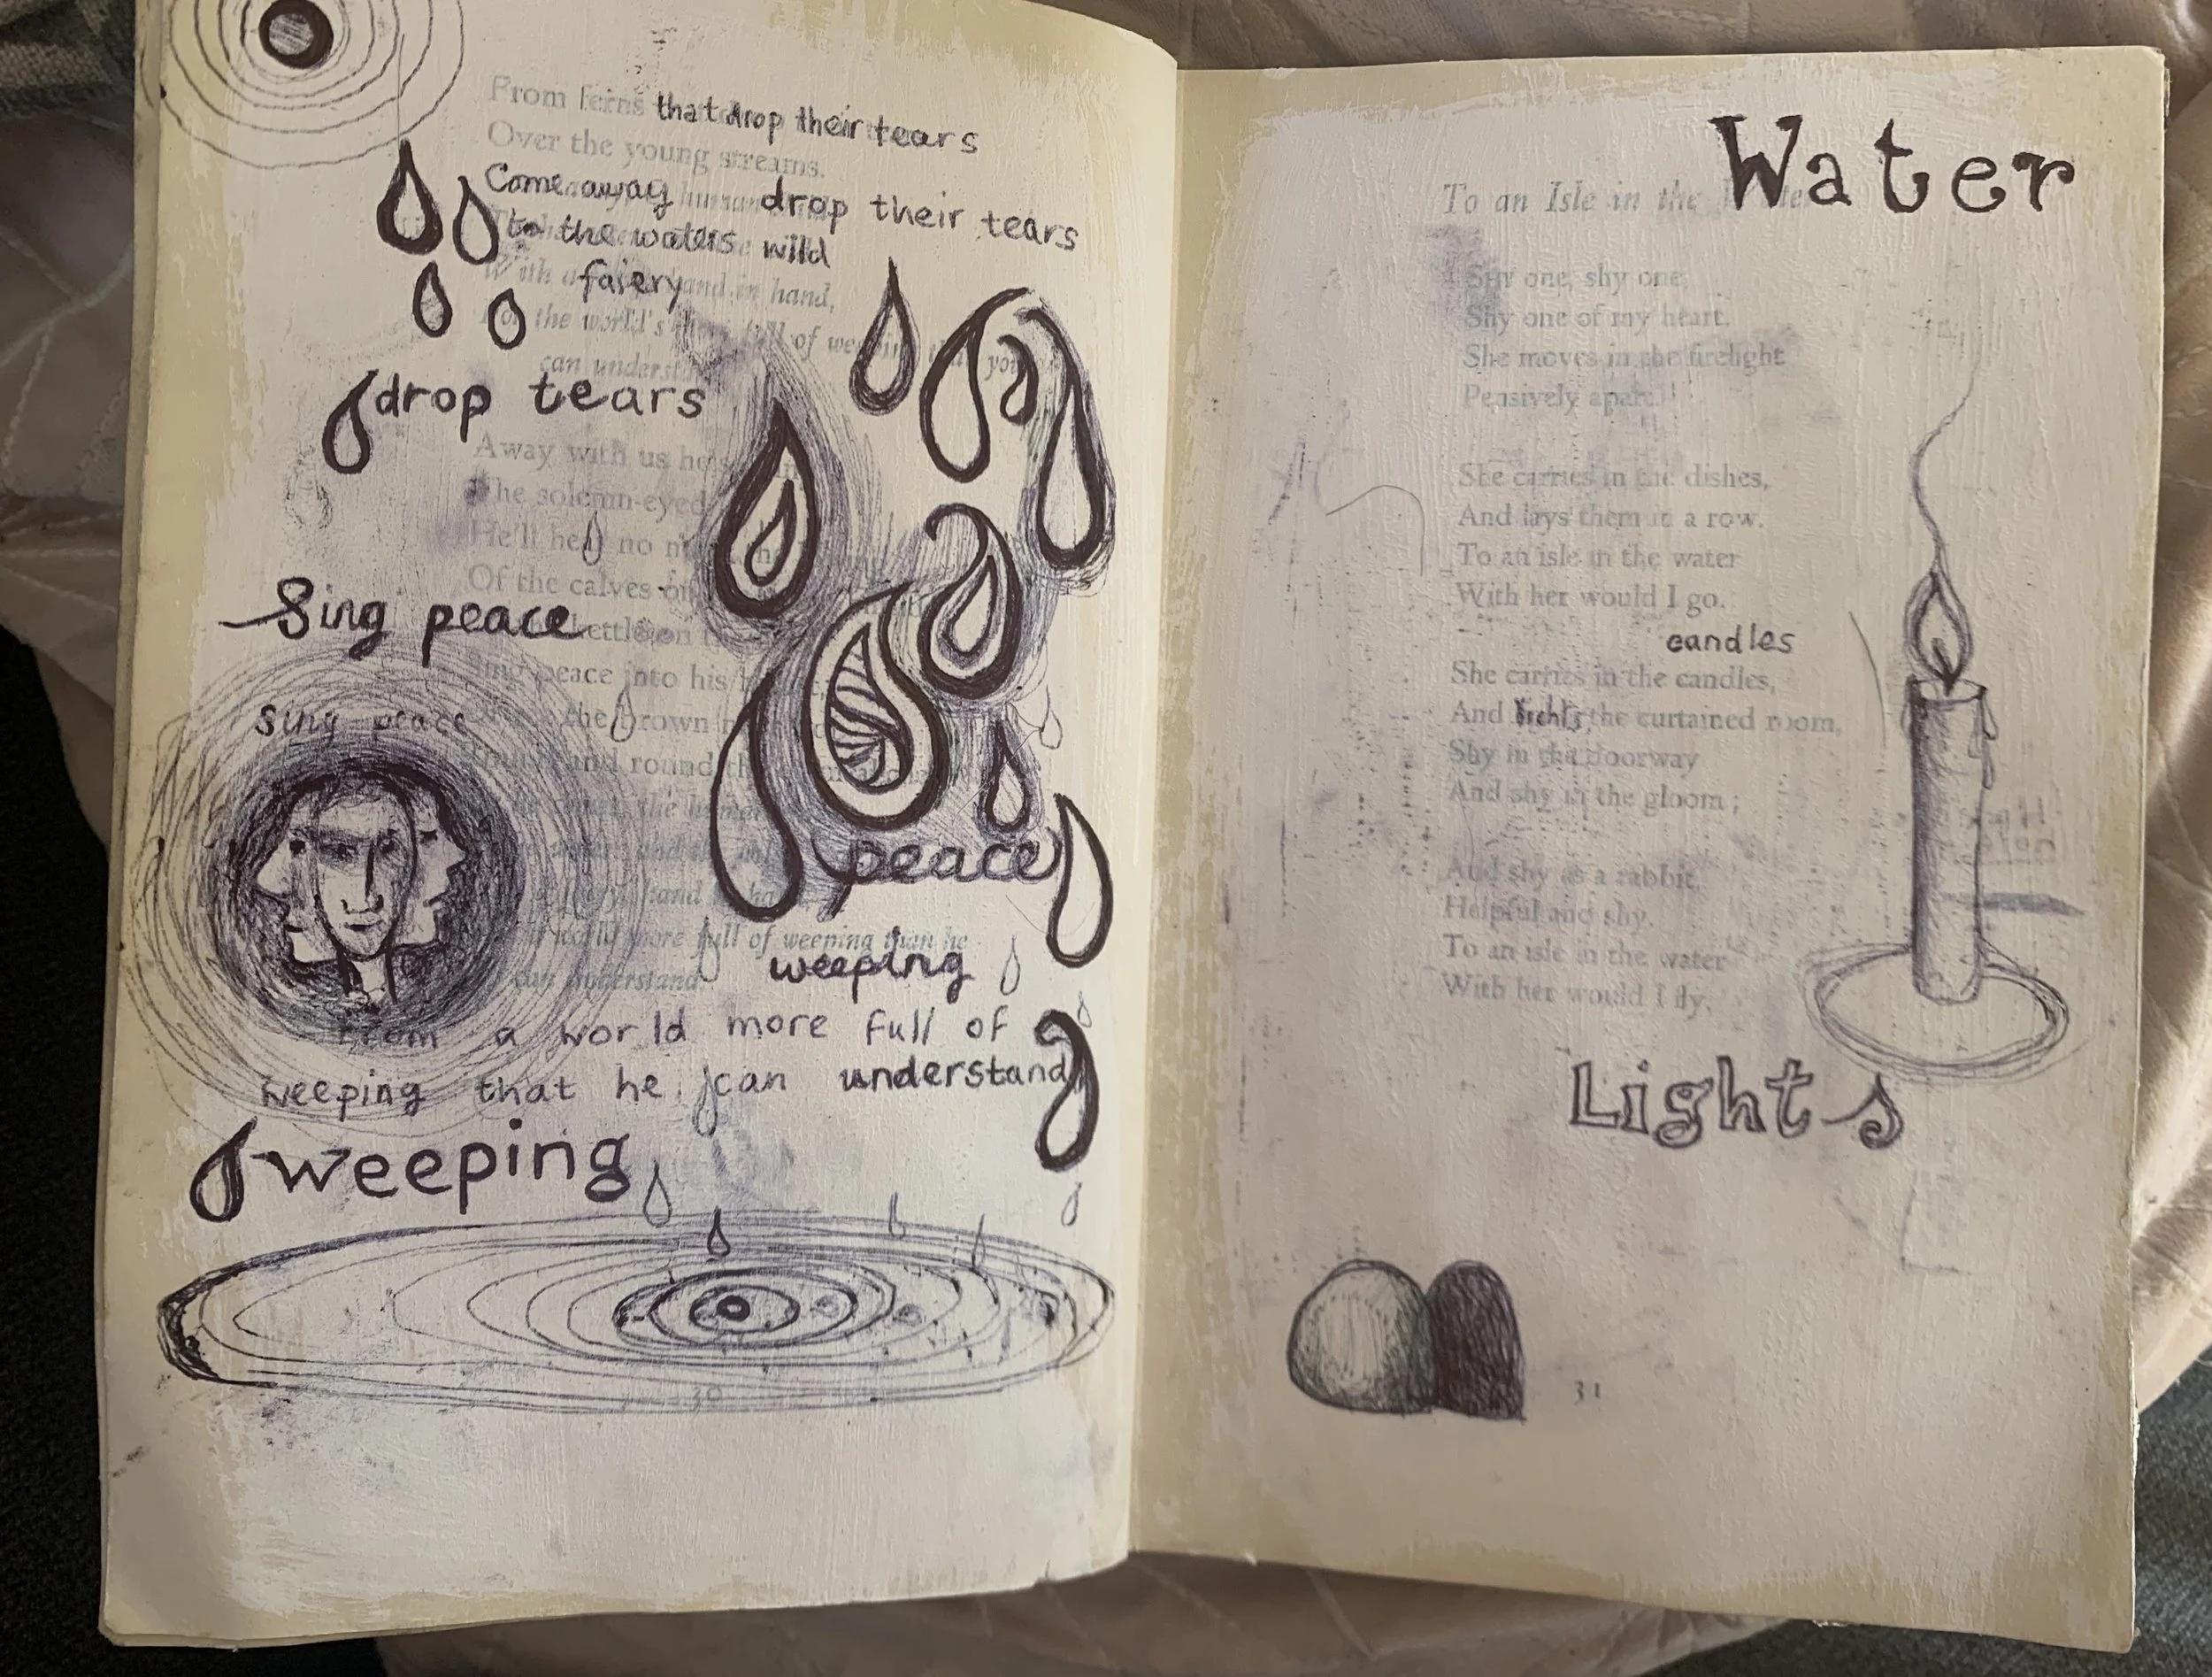 From ferns that drop their tears
Over the young streams.
Come away drop their tears
to the waters wild
With a faiery hand in hand,
For the world's full of weeping than you
can understand
drop tears
Away with us he's
The solemn-eyed
He'll hear no
Of the calves on
Sing peace
kettle on
Sing peace into his
sing peace
the brown
round and round
hand
peace
world more full of weeping than he
can understand.
weeping
From a world more full of
weeping that he can understand
weeping
30
Water
To an Isle in the
Shy one, shy one,
Shy one of my heart,
She moves in the firelight
Pensively apart.
She carries in the dishes,
And lays them in a row.
To an isle in the water
With her would I go.
candles
She carries in the candles,
And lights the curtained room,
Shy in the doorway
And shy in the gloom;
And shy as a rabbit,
Helpful and shy.
To an isle in the water
With her would I fly.
Lights
31